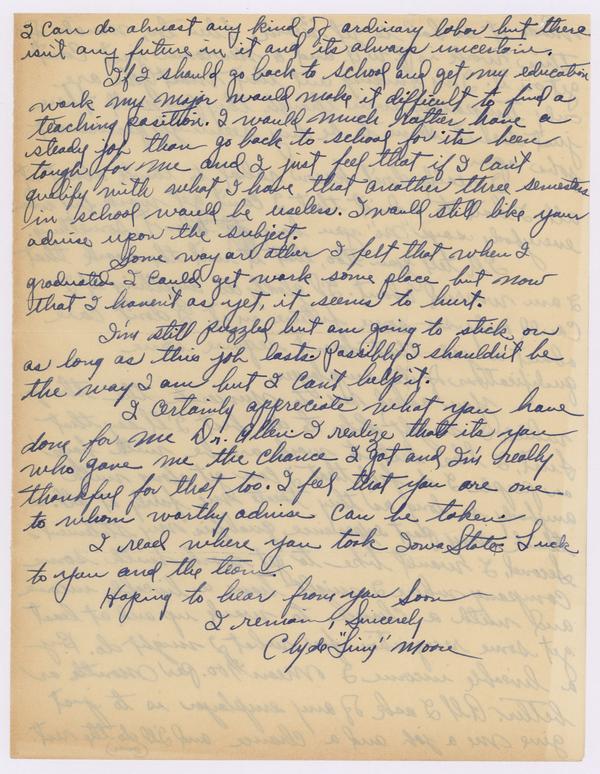 I can do almost any kind of ordinary labor but there
isn't any future in it and its always uncertain.
If I should go back to school and get my education
work my major would make it difficult to find a
teaching position. I would much rather have a
steady job than go back to school for its been
tough for me and I just feel that if I can't
qualify with what I have that another three semesters
in school would be useless. I would still like your
advise upon the subject.
Some way or other I felt that when I
graduated I could get work some place but now
that I haven't as yet, it seems to hurt.
I'm still puzzled but am going to stick on
as long as this job lasts. Possibly I shouldn't be
the way I am but I can't help it.
I certainly appreciate what you have
done for me Dr. Allen. I realize that its you
who gave me the chance I got and I'm really
thankful for that too. I feel that you are one
to whom worthy advise can be taken.
I read where you took Iowa State. Luck
to you and the team.
Hoping to hear from you soon
I remain, Sincerely
Clyde "Tiny" Moore